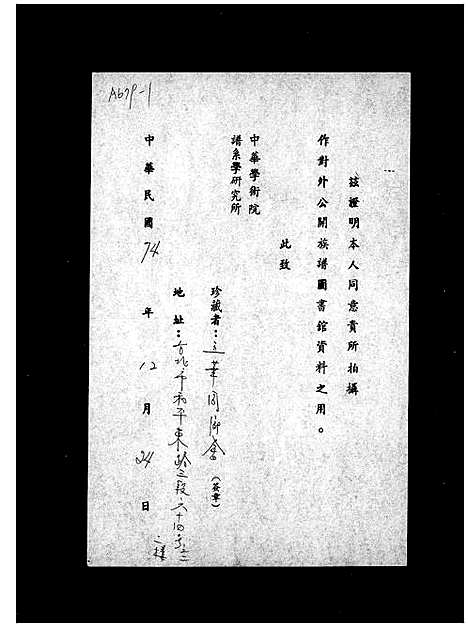 A679-1
茲證明本人同意貴所拍攝
作對外公開族譜圖書館資料之用。
此致
中華學術院
譜系學研究所
珍藏者：
（簽章）
地址：台北市和平東路三段六十四号之二樓
中華民國 74 年 12 月 24 日